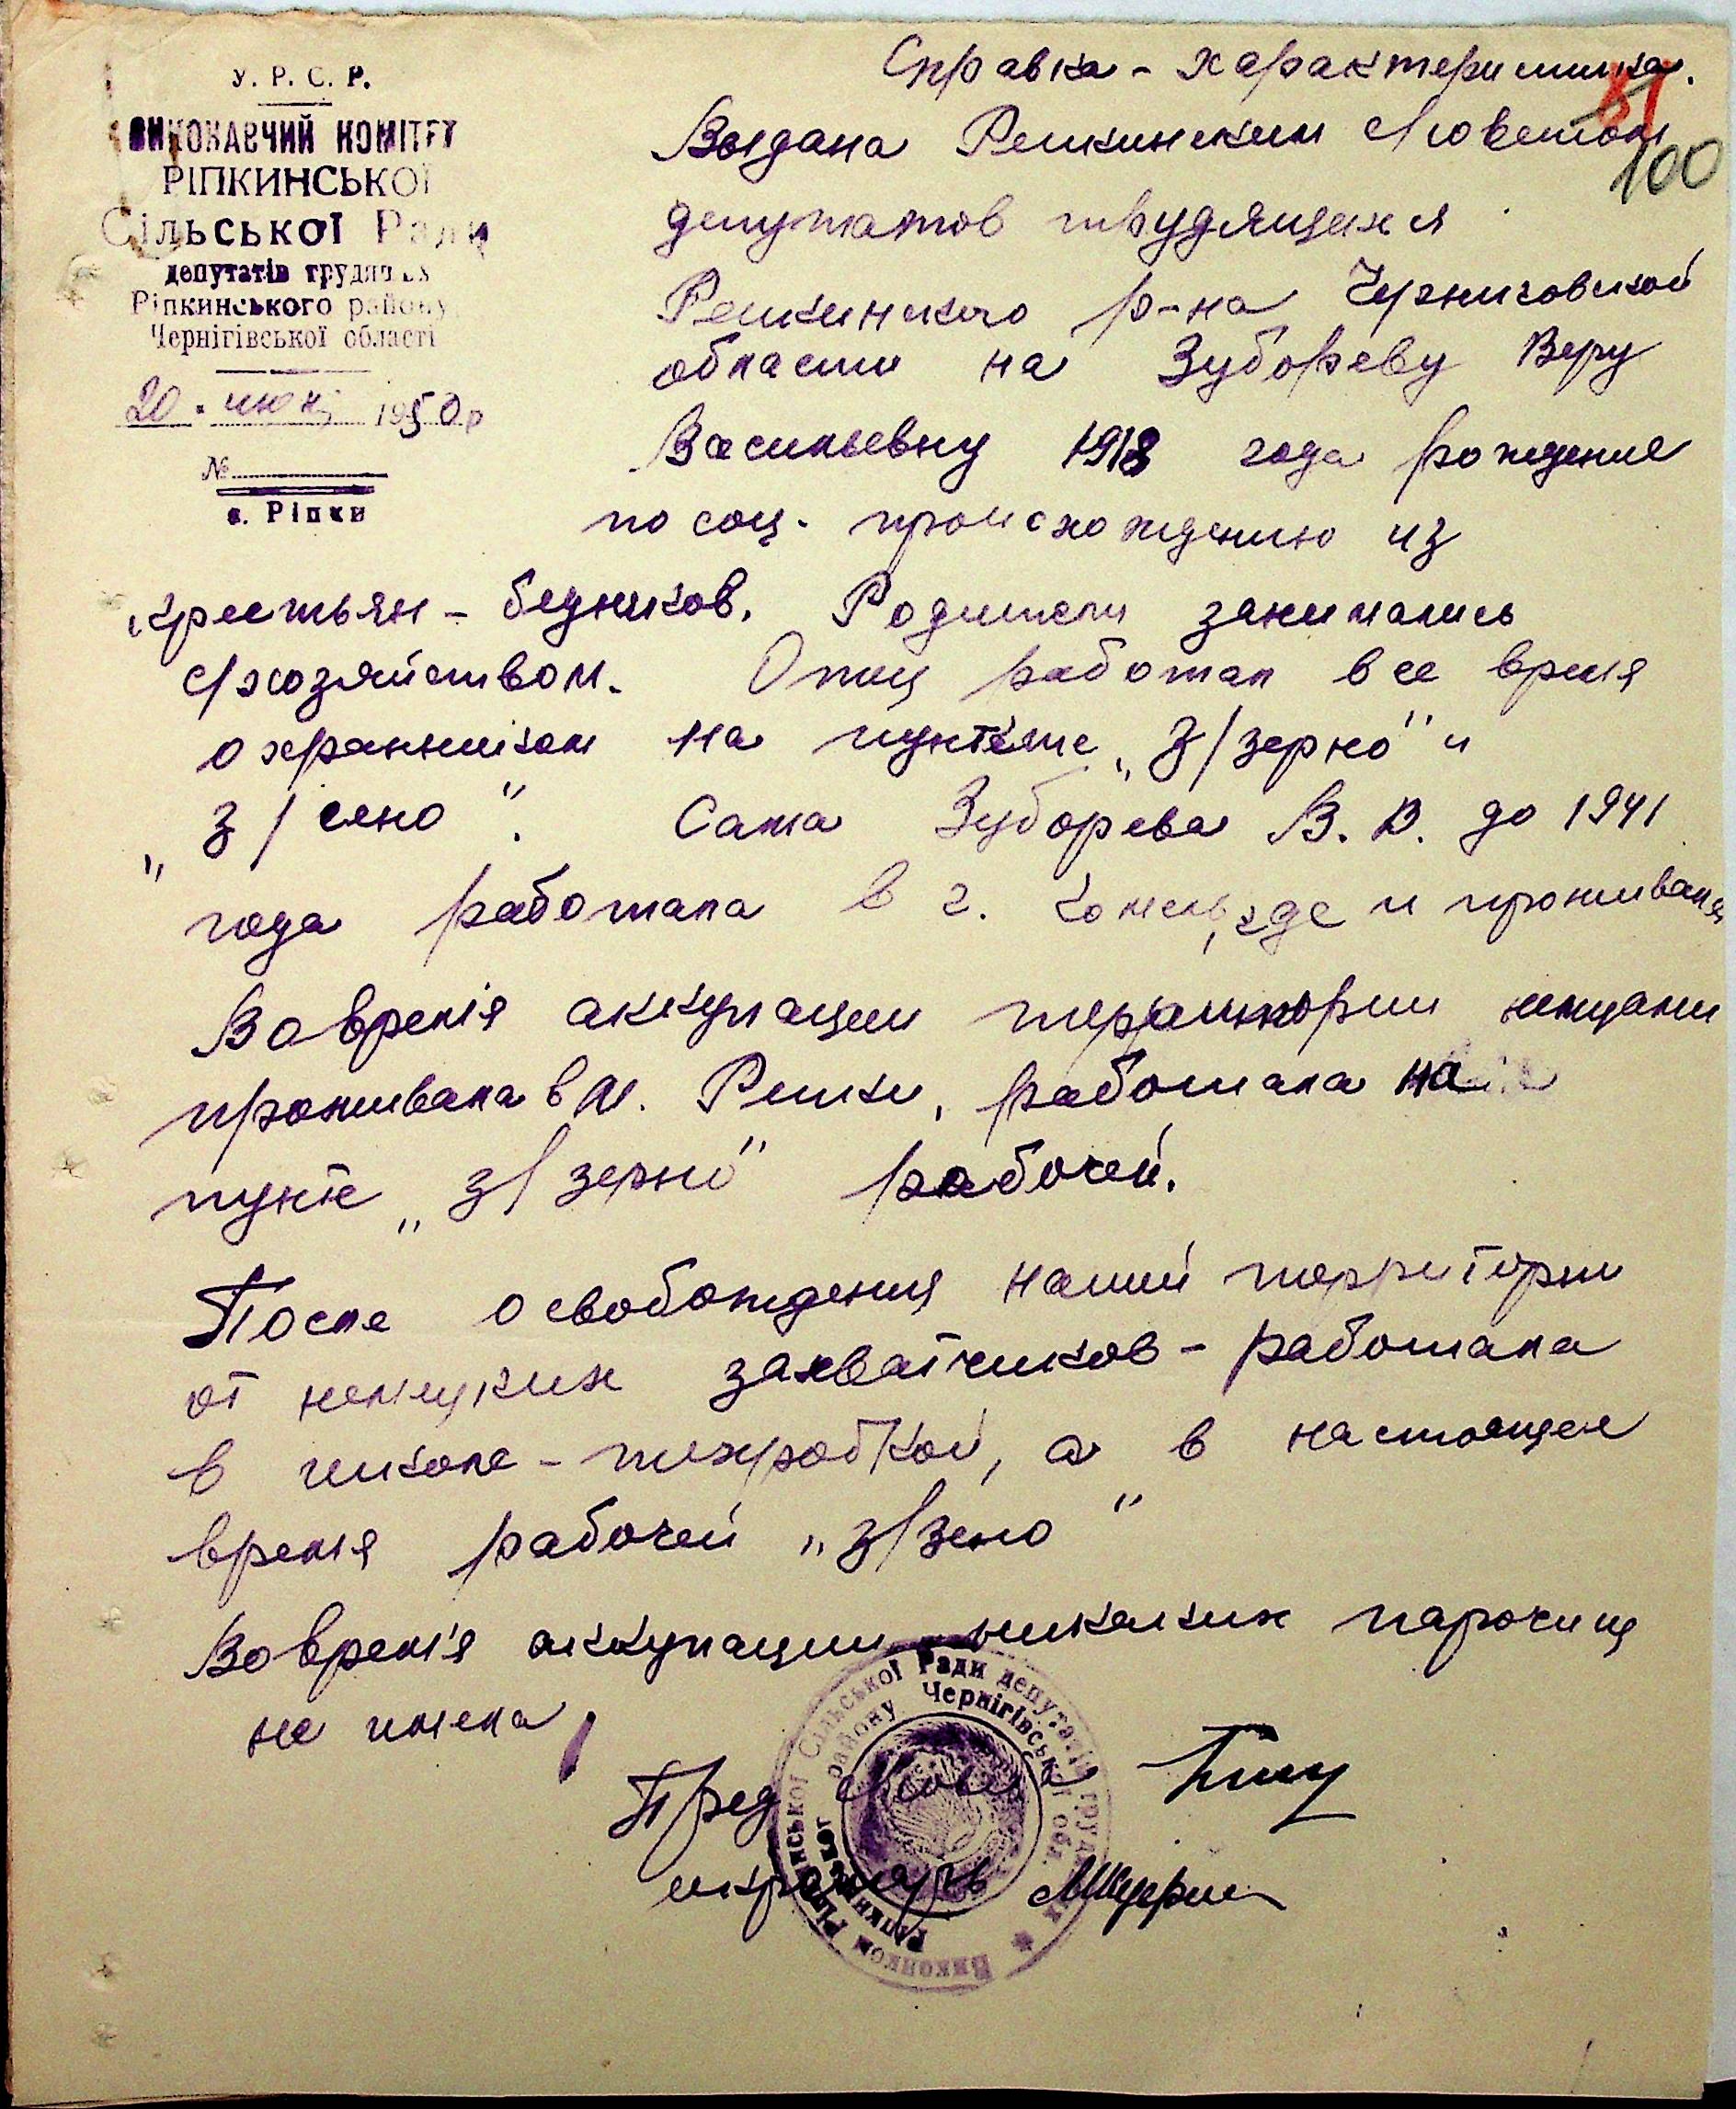 У. Р. С. Р.
ВИКОНАВЧИЙ КОМІТЕТ
РІПКИНСЬКОЇ
Сільської Ради
депутатів трудящих
Ріпкинського району
Чернігівської області
20 · июня 1950 р
№
с. Ріпки
Справка - характеристика.
81
100
Выдана Репкинским с/советом
депутатов трудящихся
Репкинского р-на Черниговской
области на Зубореву Веру
Васильевну 1918 года рождения
по соц. происхождению из
крестьян - бедняков. Родители занимались
с/хозяйством. Отец работал все время
охранником на пункте „З/зерно" и
„З/сено". Сама Зуборева В. В. до 1941
года работала в г. Гомель, где и проживала
Вовремя аккупации территории немцами
проживала в м. Репки, работала на
пункте „з/зерно" рабочей.
После освобождения нашей территории
от немецких захватчиков - работала
в школе - техработкой, а в настоящее
время рабочей „з/зено"
Вовремя аккупации никаких
не имела
Пред с/совета
секретарь
Виконком Ріпкинської Сільської Ради депутатів трудящих
Ріпкинського району Чернігівської обл.